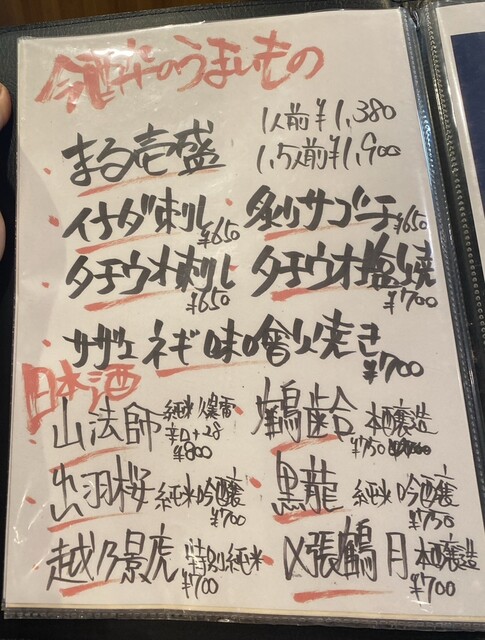 今酒菜のうまいもの
まる壱盛 1人前¥1,380
1.5人前¥1,900
イナダ刺し ¥650
炙りサゴシ ¥650
タチウオ刺し ¥650
タチウオ塩焼 ¥700
サザエネギ味噌焼き ¥700
日本酒
山法師 純米爆雷
辛口+28
¥800
鶴齢 本醸造
¥750
出羽桜 純米吟醸
¥700
黒龍 純米吟醸
¥750
越乃景虎 特別純米
¥700
〆張鶴 月 本醸造
¥700